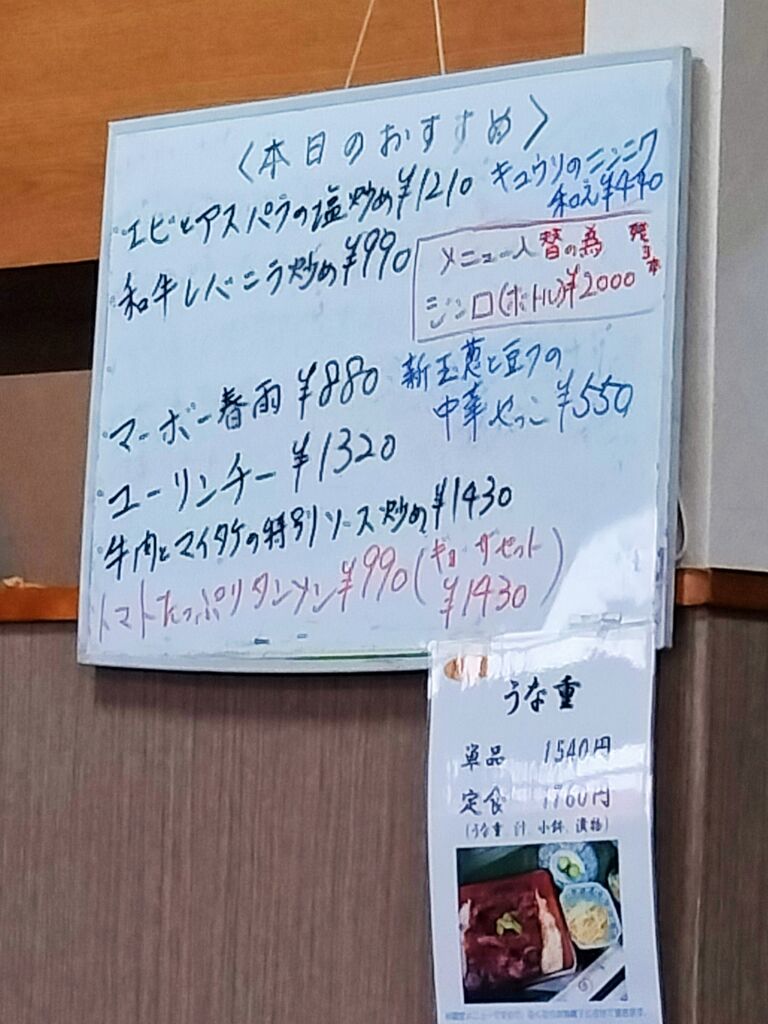 〈本日のおすすめ〉
エビとアスパラの塩炒め ¥1210
キュウリのニンニク
和え ¥440
和牛レバニラ炒め ¥990
メニュー入替の為
残3本
ジンロ(ボトル)¥2000
マーボー春雨 ¥880
新玉葱と豆フの
中華やっこ ¥550
ユーリンチー ¥1320
牛肉とマイタケの特別ソース炒め ¥1430
トマトたっぷりタンメン ¥990 (ギョーザセット
¥1430)
うな重
単品 1540円
定食 1760円
(うな重、汁、小鉢、漬物)